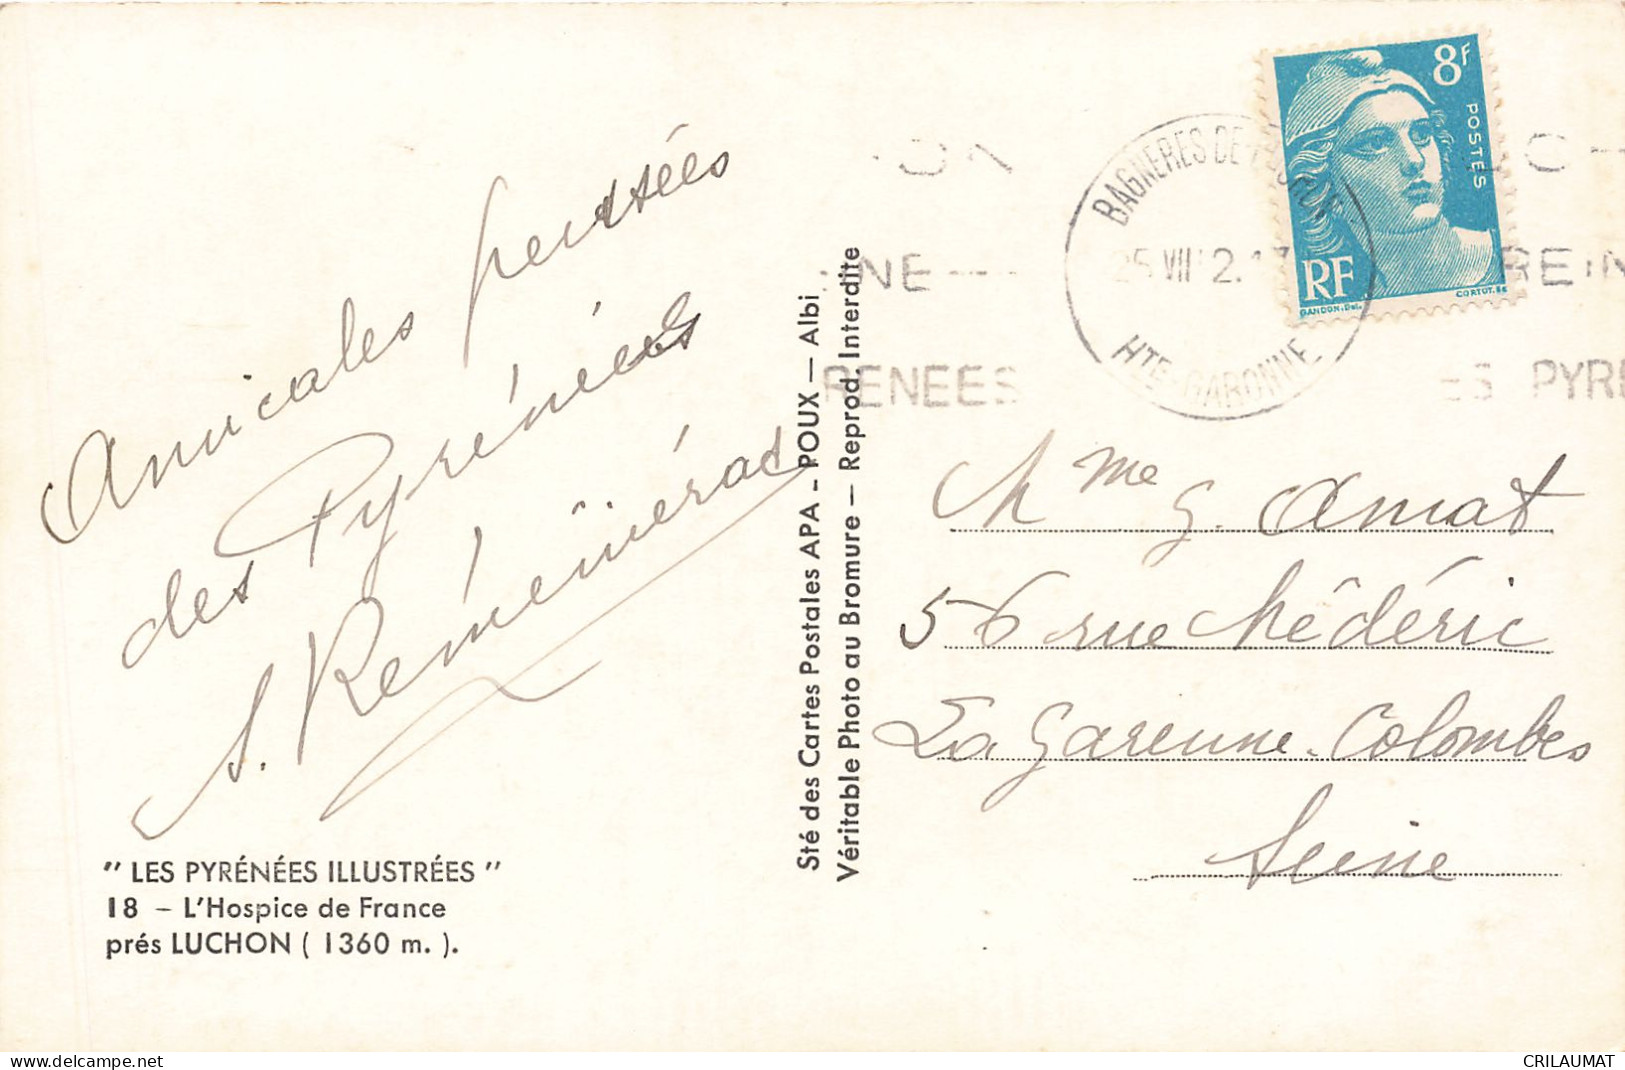 Amicales pensées
des Pyrénées
S. Reménérad
" LES PYRÉNÉES ILLUSTRÉES "
18 – L'Hospice de France
prés LUCHON ( 1360 m. ).
Sté des Cartes Postales APA - POUX — Albi
Véritable Photo au Bromure — Reprod. Interdite
8F
POSTES
RF
GANDON.Del.
CORTOT.Sc
BAGNERES DE
HTE-GARONNE
25 VII
RENEES
ES PYRE
REIN
Mme G. Amat
56 rue Médéric
La Garenne-Colombes
Seine
delcampe.net
CRILAUMAT